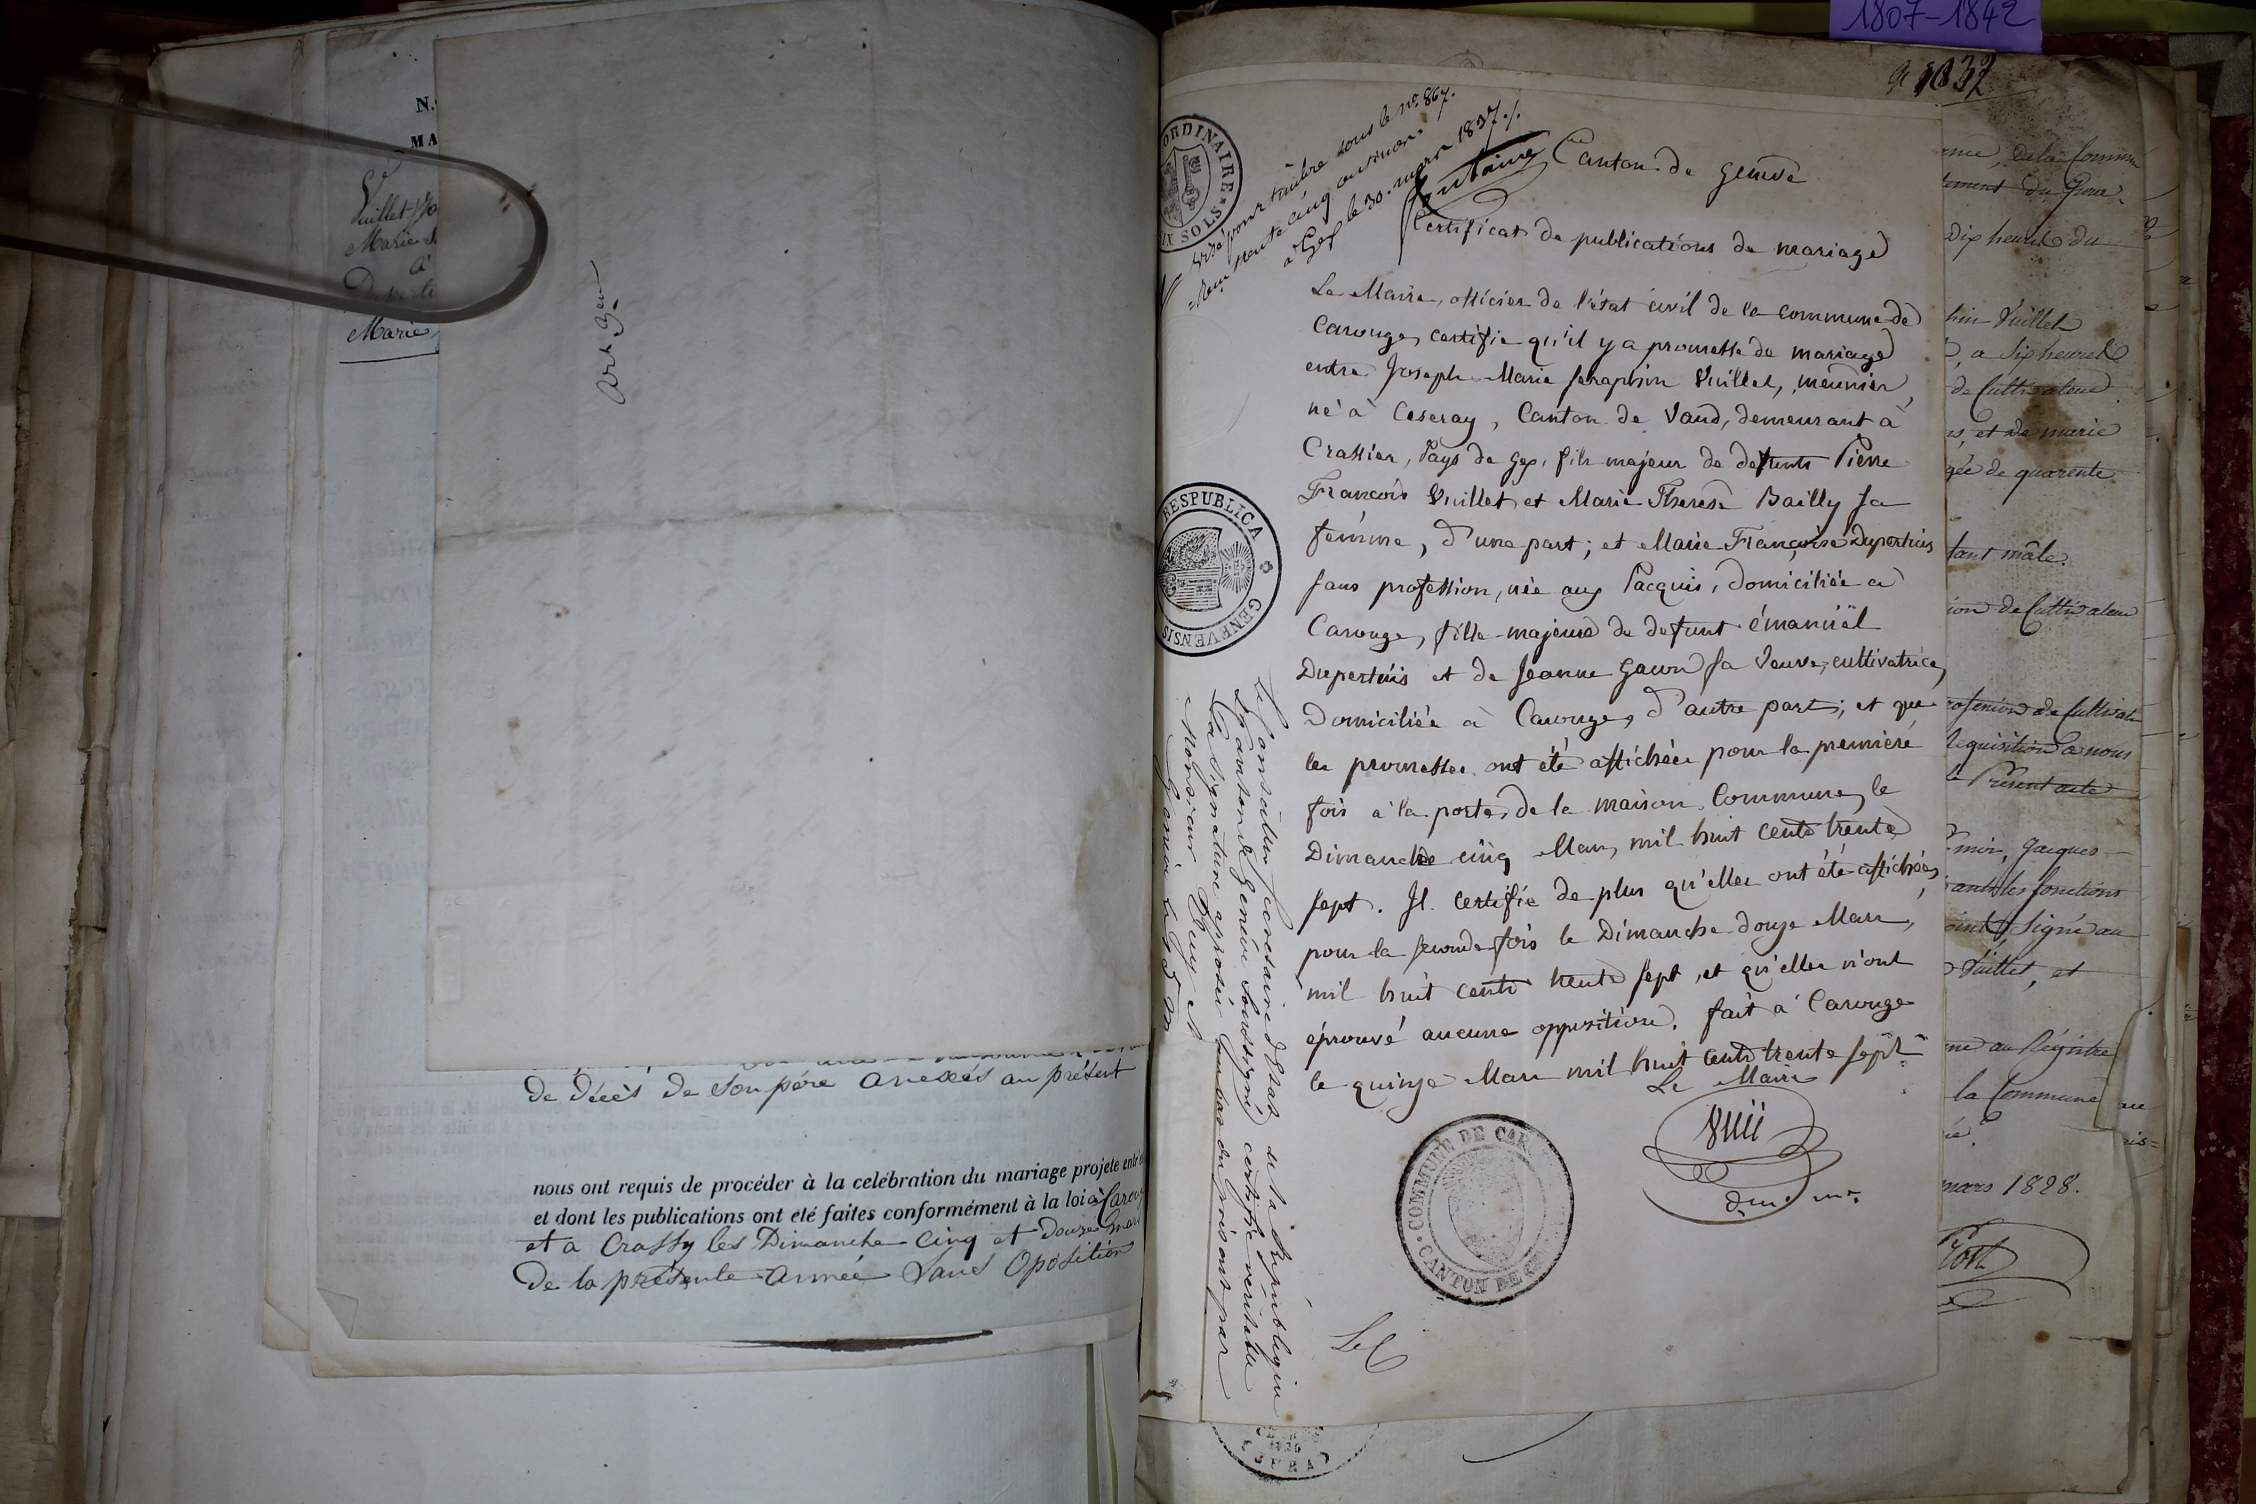 1807-1842
N.
MA
Vuillet
Marie
à
Marie
de décès de Son père anexés au présent
nous ont requis de procéder à la celébration du mariage projeté entr
et dont les publications ont été faites conformément à la loi à Carou
et a Crassy les Dimanche Cinq et Douze mars
De la présente année Sans Oposition
ORDINAIRE
SOLS
Visé pour timbre sous le n°. 867.
Reçu trente cinq centimes.
à Gex le 30. mars 1837.
Canton de Genève
Certificat de publications de mariage
Le Maire, officier de l'état civil de la commune de
Carouge, certifie qu'il y a promesse de mariage
entre Joseph Marie Seraphin Vuillet, meunier,
né à Ceseray, Canton de Vaud, demeurant à
Crassier, Pays de Gex, fils majeur de defunts Pierre
François Vuillet et Marie Therese Bailly sa
femme, d'une part; et Marie Françoise Dupertuis
sans profession, née aux Pacquis, domiciliée à
Carouge, fille majeure de defunt émanuël
Dupertuis et de Jeanne Gacon sa veuve, cultivatrice,
Domiciliée à Carouge, d'autre part; et que
les promesses ont été affichées pour la première
fois à la porte de la maison Commune, le
Dimanche cinq Mars, mil huit cents trente
sept. Il certifie de plus qu'elles ont été affichées,
pour la seconde fois le Dimanche douze Mars,
mil huit cents trente sept, et qu'elles n'ont
éprouvé aucune opposition. fait à Carouge
le quinze Mars mil huit cents trente sept.
Le Maire
COMMUNE DE CAR
CANTON DE
RESPUBLICA
GENEVENSIS
Le Conseiller secretaire d'Etat de la République
et Canton de Genève soussigné, certifie véritable
la signature apposée au bas du présent par
Monsieur
Genève le
de la Commune
tement du Jura.
Dix heures du
Vuillet
a Six heures
de Cultivateur
et de marie
gée de quarente
tant mâle.
ion de Cultivateur
rofession de Cultivat
Requisition a nous
le Present acte
moi, Jacques
ant les fonctions
Signé au
Vuillet, et
me au Régistre
la Commune
mars 1828.
JURA